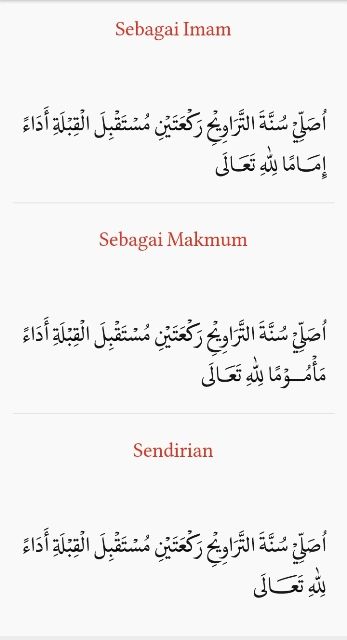 Sebagai Imam
اُصَلِّيْ سُنَّةَ التَّرَاوِيْحِ رَكْعَتَيْنِ مُسْتَقْبِلَ الْقِبْلَةِ أَدَاءً
إِمَـامًا لِلّٰهِ تَعَـالَى
Sebagai Makmum
اُصَلِّيْ سُنَّةَ التَّرَاوِيْحِ رَكْعَتَيْنِ مُسْتَقْبِلَ الْقِبْلَةِ أَدَاءً
مَأْمُـــوْمًا لِلّٰهِ تَعَـالَى
Sendirian
اُصَلِّيْ سُنَّةَ التَّرَاوِيْحِ رَكْعَتَيْنِ مُسْتَقْبِلَ الْقِبْلَةِ أَدَاءً
لِلّٰهِ تَعَـــالَى